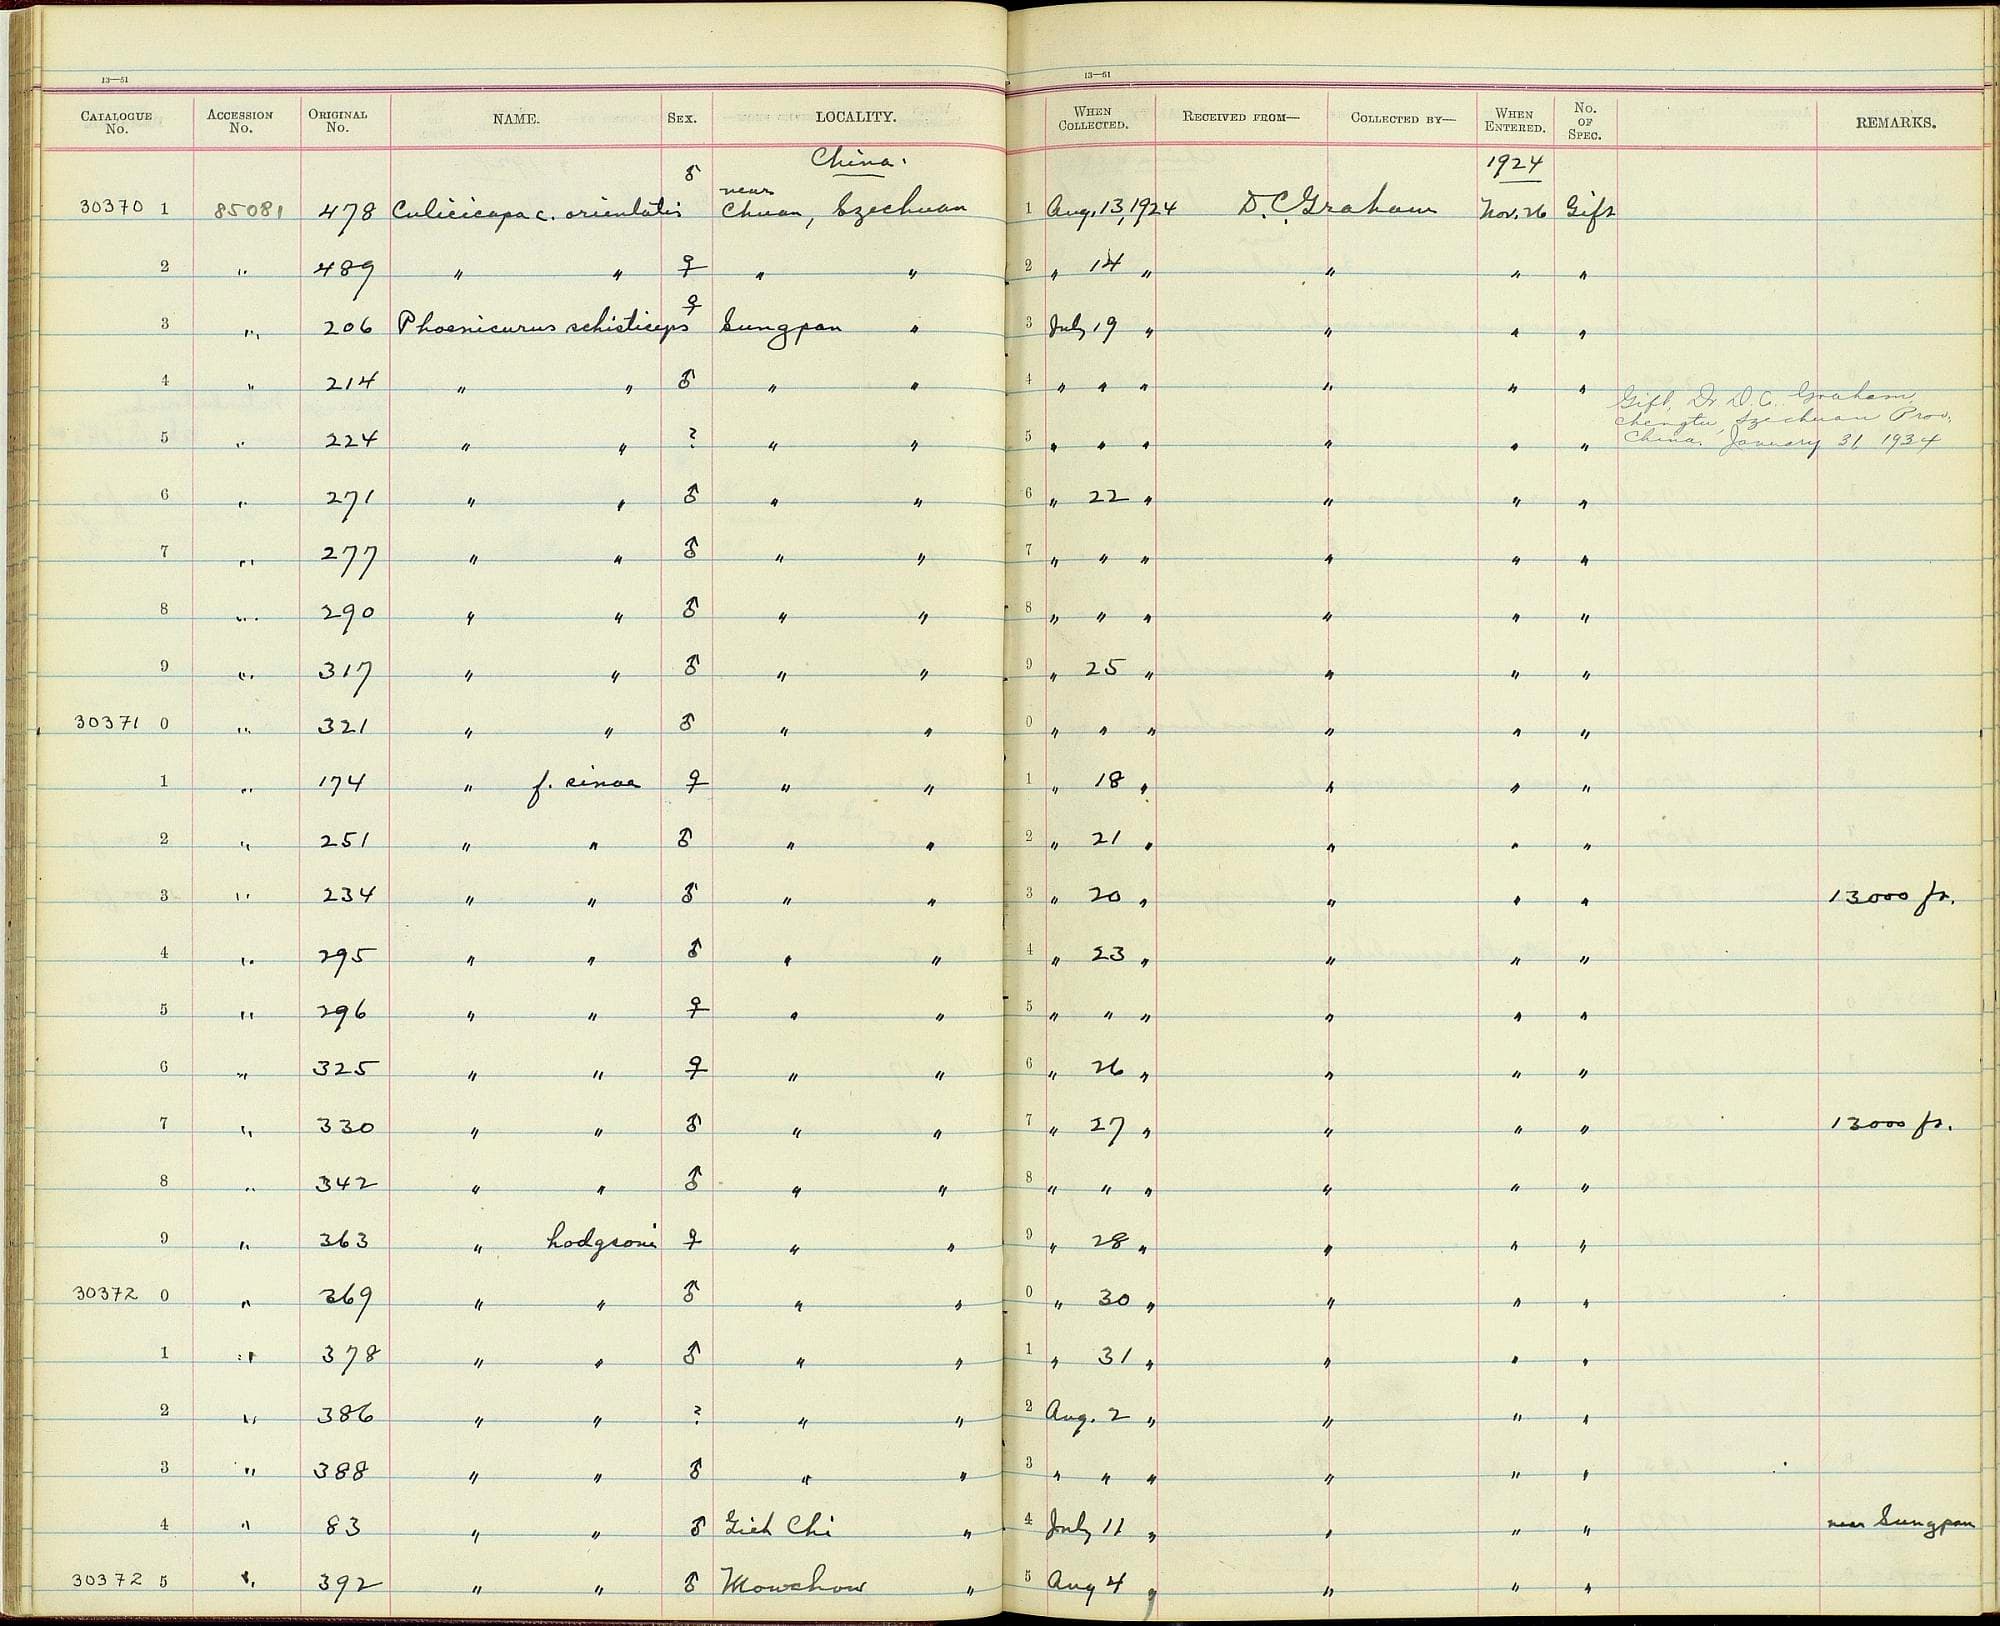 13—51
CATALOGUE No. ACCESSION No. ORIGINAL No. NAME. SEX. LOCALITY.
China.
30370 1 85081 478 Culicicapa c. orientalis ♂ near Chuan, Szechuan
2 " 489 " " ♀ " "
3 " 206 Phoenicurus schisticeps ♀ Sungpan "
4 " 214 " " ♂ " "
5 " 224 " " ? " "
6 " 271 " " ♂ " "
7 " 277 " " ♂ " "
8 " 290 " " ♂ " "
9 " 317 " " ♂ " "
30371 0 " 321 " " ♂ " "
1 " 174 " f. sinae ♀ " "
2 " 251 " " ♂ " "
3 " 234 " " ♂ " "
4 " 295 " " ♂ " "
5 " 296 " " ♀ " "
6 " 325 " " ♀ " "
7 " 330 " " ♂ " "
8 " 342 " " ♂ " "
9 " 363 " hodgsoni ♀ " "
30372 0 " 369 " " ♂ " "
1 " 378 " " ♂ " "
2 " 386 " " ? " "
3 " 388 " " ♂ " "
4 " 83 " " ♂ Gieh Chi "
30372 5 " 392 " " ♂ Mowchow "
13—51
WHEN COLLECTED. RECEIVED FROM— COLLECTED BY— WHEN ENTERED. No. OF SPEC. REMARKS.
1924
1 Aug. 13, 1924 D. C. Graham Nov. 26 Gift
2 " 14 " " " "
3 July 19 " " " "
4 " " " " " "
Gift, Dr D. C. Graham,
Chengtu, Szechuan Prov.,
China. January 31 1934
5 " " " " " "
6 " 22 " " " "
7 " " " " " "
8 " " " " " "
9 " 25 " " " "
0 " " " " " "
1 " 18 " " " "
2 " 21 " " " "
3 " 20 " " " " 13000 ft.
4 " 23 " " " "
5 " " " " " "
6 " 26 " " " "
7 " 27 " " " " 13000 ft.
8 " " " " " "
9 " 28 " " " "
0 " 30 " " " "
1 " 31 " " " "
2 Aug. 2 " " " "
3 " " " " " "
4 July 11 " " " " near Sungpan
5 Aug 4 " " " "